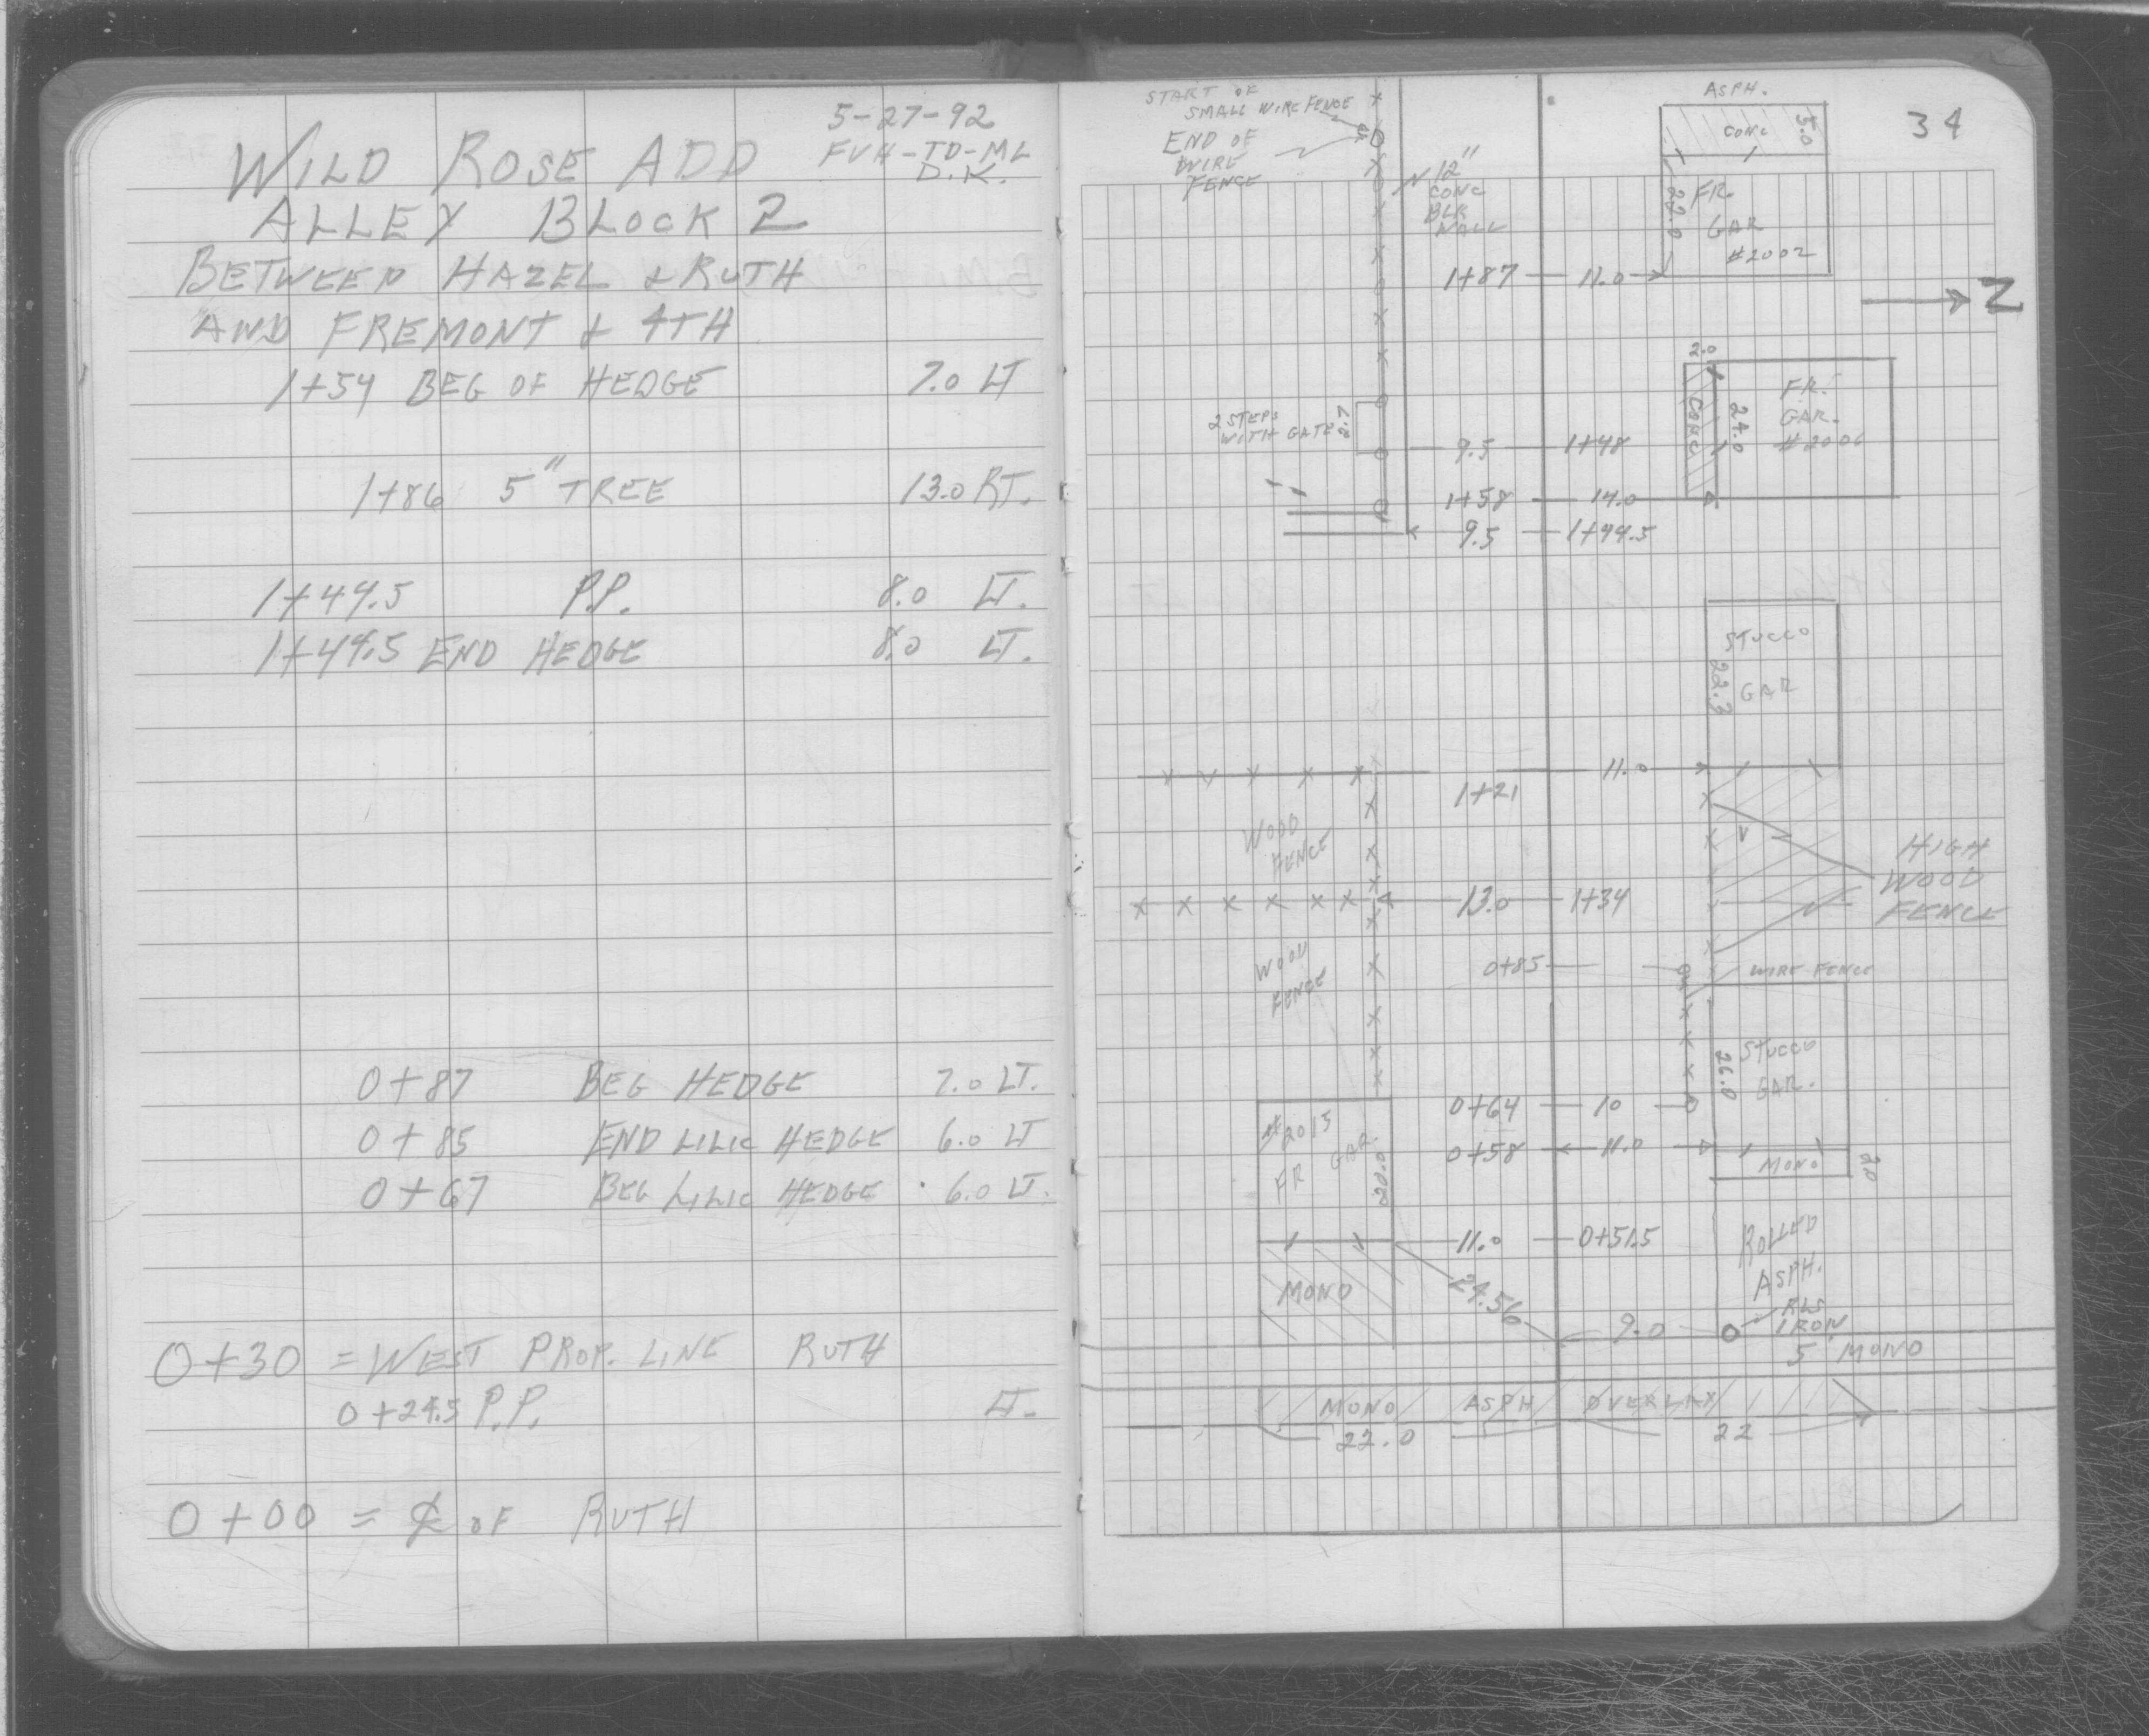 5-27-92
WILD ROSE ADD FVH-TD-ML
D.K.
ALLEY BLOCK 2
BETWEEN HAZEL & RUTH
AND FREMONT & 4TH
1+54 BEG OF HEDGE 7.0 LT
1+86 5" TREE 13.0 RT.
1+49.5 P.P. 8.0 LT.
1+49.5 END HEDGE 8.0 LT.
0+87 BEG HEDGE 7.0 LT.
0+85 END LILIC HEDGE 6.0 LT
0+67 BEG LILIC HEDGE 6.0 LT.
0+30 = WEST PROP. LINE RUTH
0+24.5 P.P. LT.
0+00 = ₵ OF RUTH
34
START OF
SMALL WIRE FENCE
END OF
WIRE
FENCE
12"
CONC
BLK
WALL
ASPH.
CONC 5.0
22.0 FR.
GAR
#2002
1+87 11.0
Z
2 STEPS
WITH GATE
9.5 1+48
2.0
CONC
24.0
FR.
GAR.
#2006
1+58 14.0
9.5 1+44.5
STUCCO
22.3 GAR
11.0
1+21
WOOD
FENCE
13.0 1+34
HIGH
WOOD
FENCE
WOOD
FENCE
0+85
WIRE FENCE
26.0
STUCCO
GAR.
0+64 10
0+58 11.0
MONO 2.0
#2015
FR GAR.
20.0
11.0 0+51.5
MONO
24.56
ROLLED
ASPH.
9.0
RLS
IRON
5' MONO
MONO ASPH OVERLAY
22.0 22